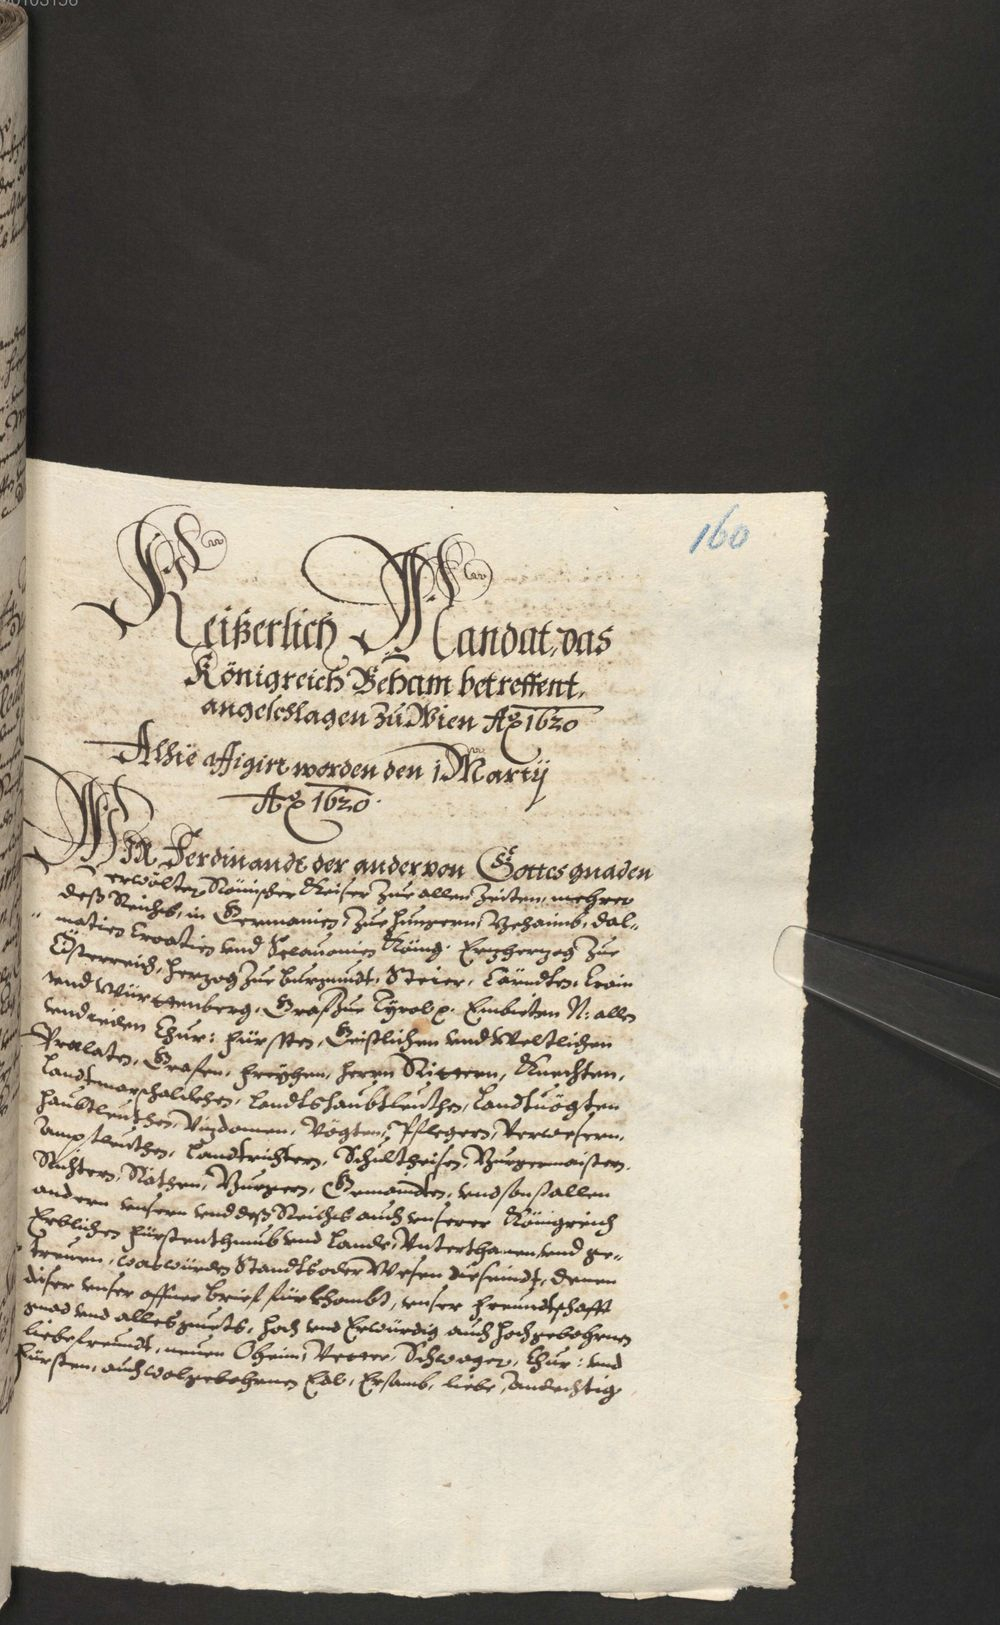 160
Keißerlich Mandat, das
Königreich Beham betreffent,
angeschlagen zu Wien Ao 1620
Alhie affigirt worden den 1 Martij
Ao 1620.
WIR Ferdinandt der ander von Gottes gnaden
erwölter Römischer Keiser zue allen Zeiten, mehrer
deß Reichs, in Germanien, zue Hungern, Behaimb, Dal-
matien Croatien und Sclavonien König. Erzherzog zue
Österreich, Herzog zue Burgundt, Steier, Cärndten, Crain
und Würtenberg, Graff zue Tyrol etc. Embieten N: allen
und ieden Chur: Fürsten, Geistlichen und Weltlichen
Praelaten, Grafen, Freyhen, Herrn Rittern, Knechten,
Landtmarschalckhen, Landtshaubtleuthen, Landtvögten
Haubtleuthen, Vizdomen, Vögten, Pflegern, Verwesern,
Amptleuthen, Landtrichtern, Schultheisen, Burgermaistern,
Richtern, Räthen, Burgern, Gemaindten, und sonst allen
andern unsern und deß Reichs auch unserer Königreich
Erblichen Fürstenthumb und Lande, Unterthanen und ge-
treuen, was würden Standts oder Wesen die seindt, denen
diser unser offner Brief fürkhombt, unser Freundtschafft
gnad und alles guets, Hoch und Ehrwürdig auch Hochgebohrnen
liebe freundt, neuen Oheim, Vetter, Schwager, Chur: und
Fürsten, auch wolgebohrnen Edl, Ersamb, liebe, andechtig